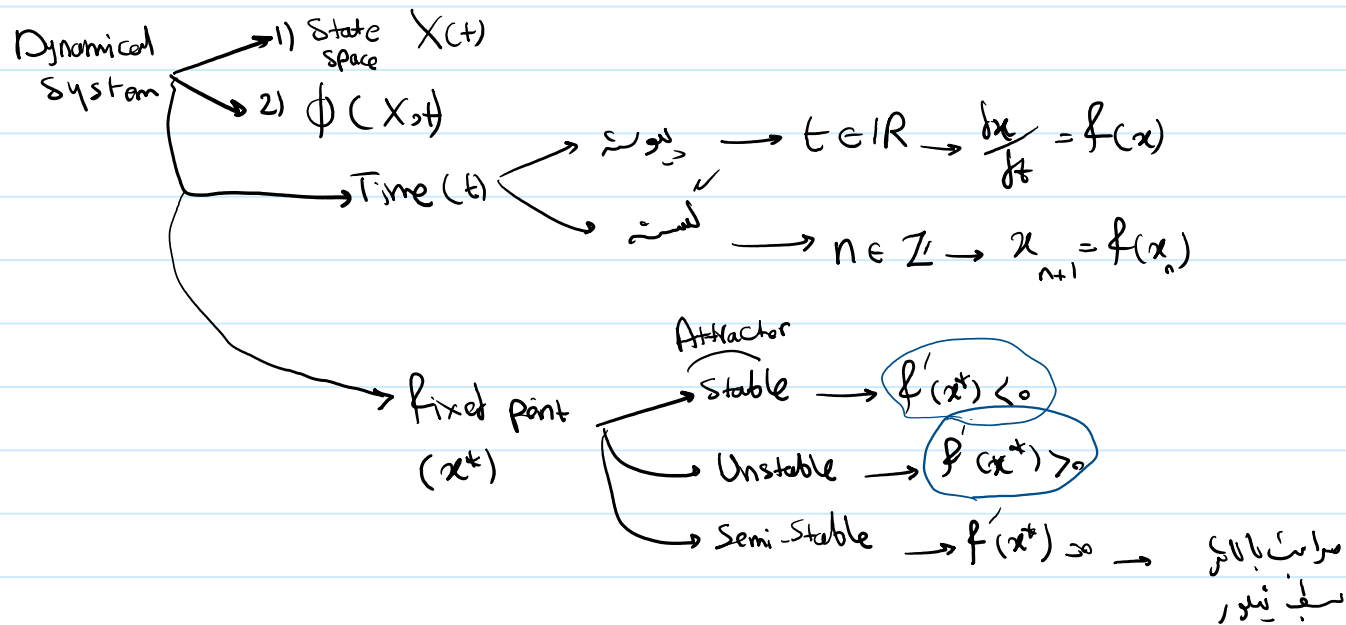 Dynamical System
1) State space X(t)
2) φ(X,t)
Time (t)
پیوسته → t ∈ ℝ → dx/dt = f(x)
گسسته ✓ → n ∈ ℤ → x_{n+1} = f(x_n)
fixed point (x*)
Attractor
Stable → f'(x*) < 0
Unstable → f'(x*) > 0
Semi-Stable → f'(x*) = 0 → مراتب بالاتر
بسط تیلور